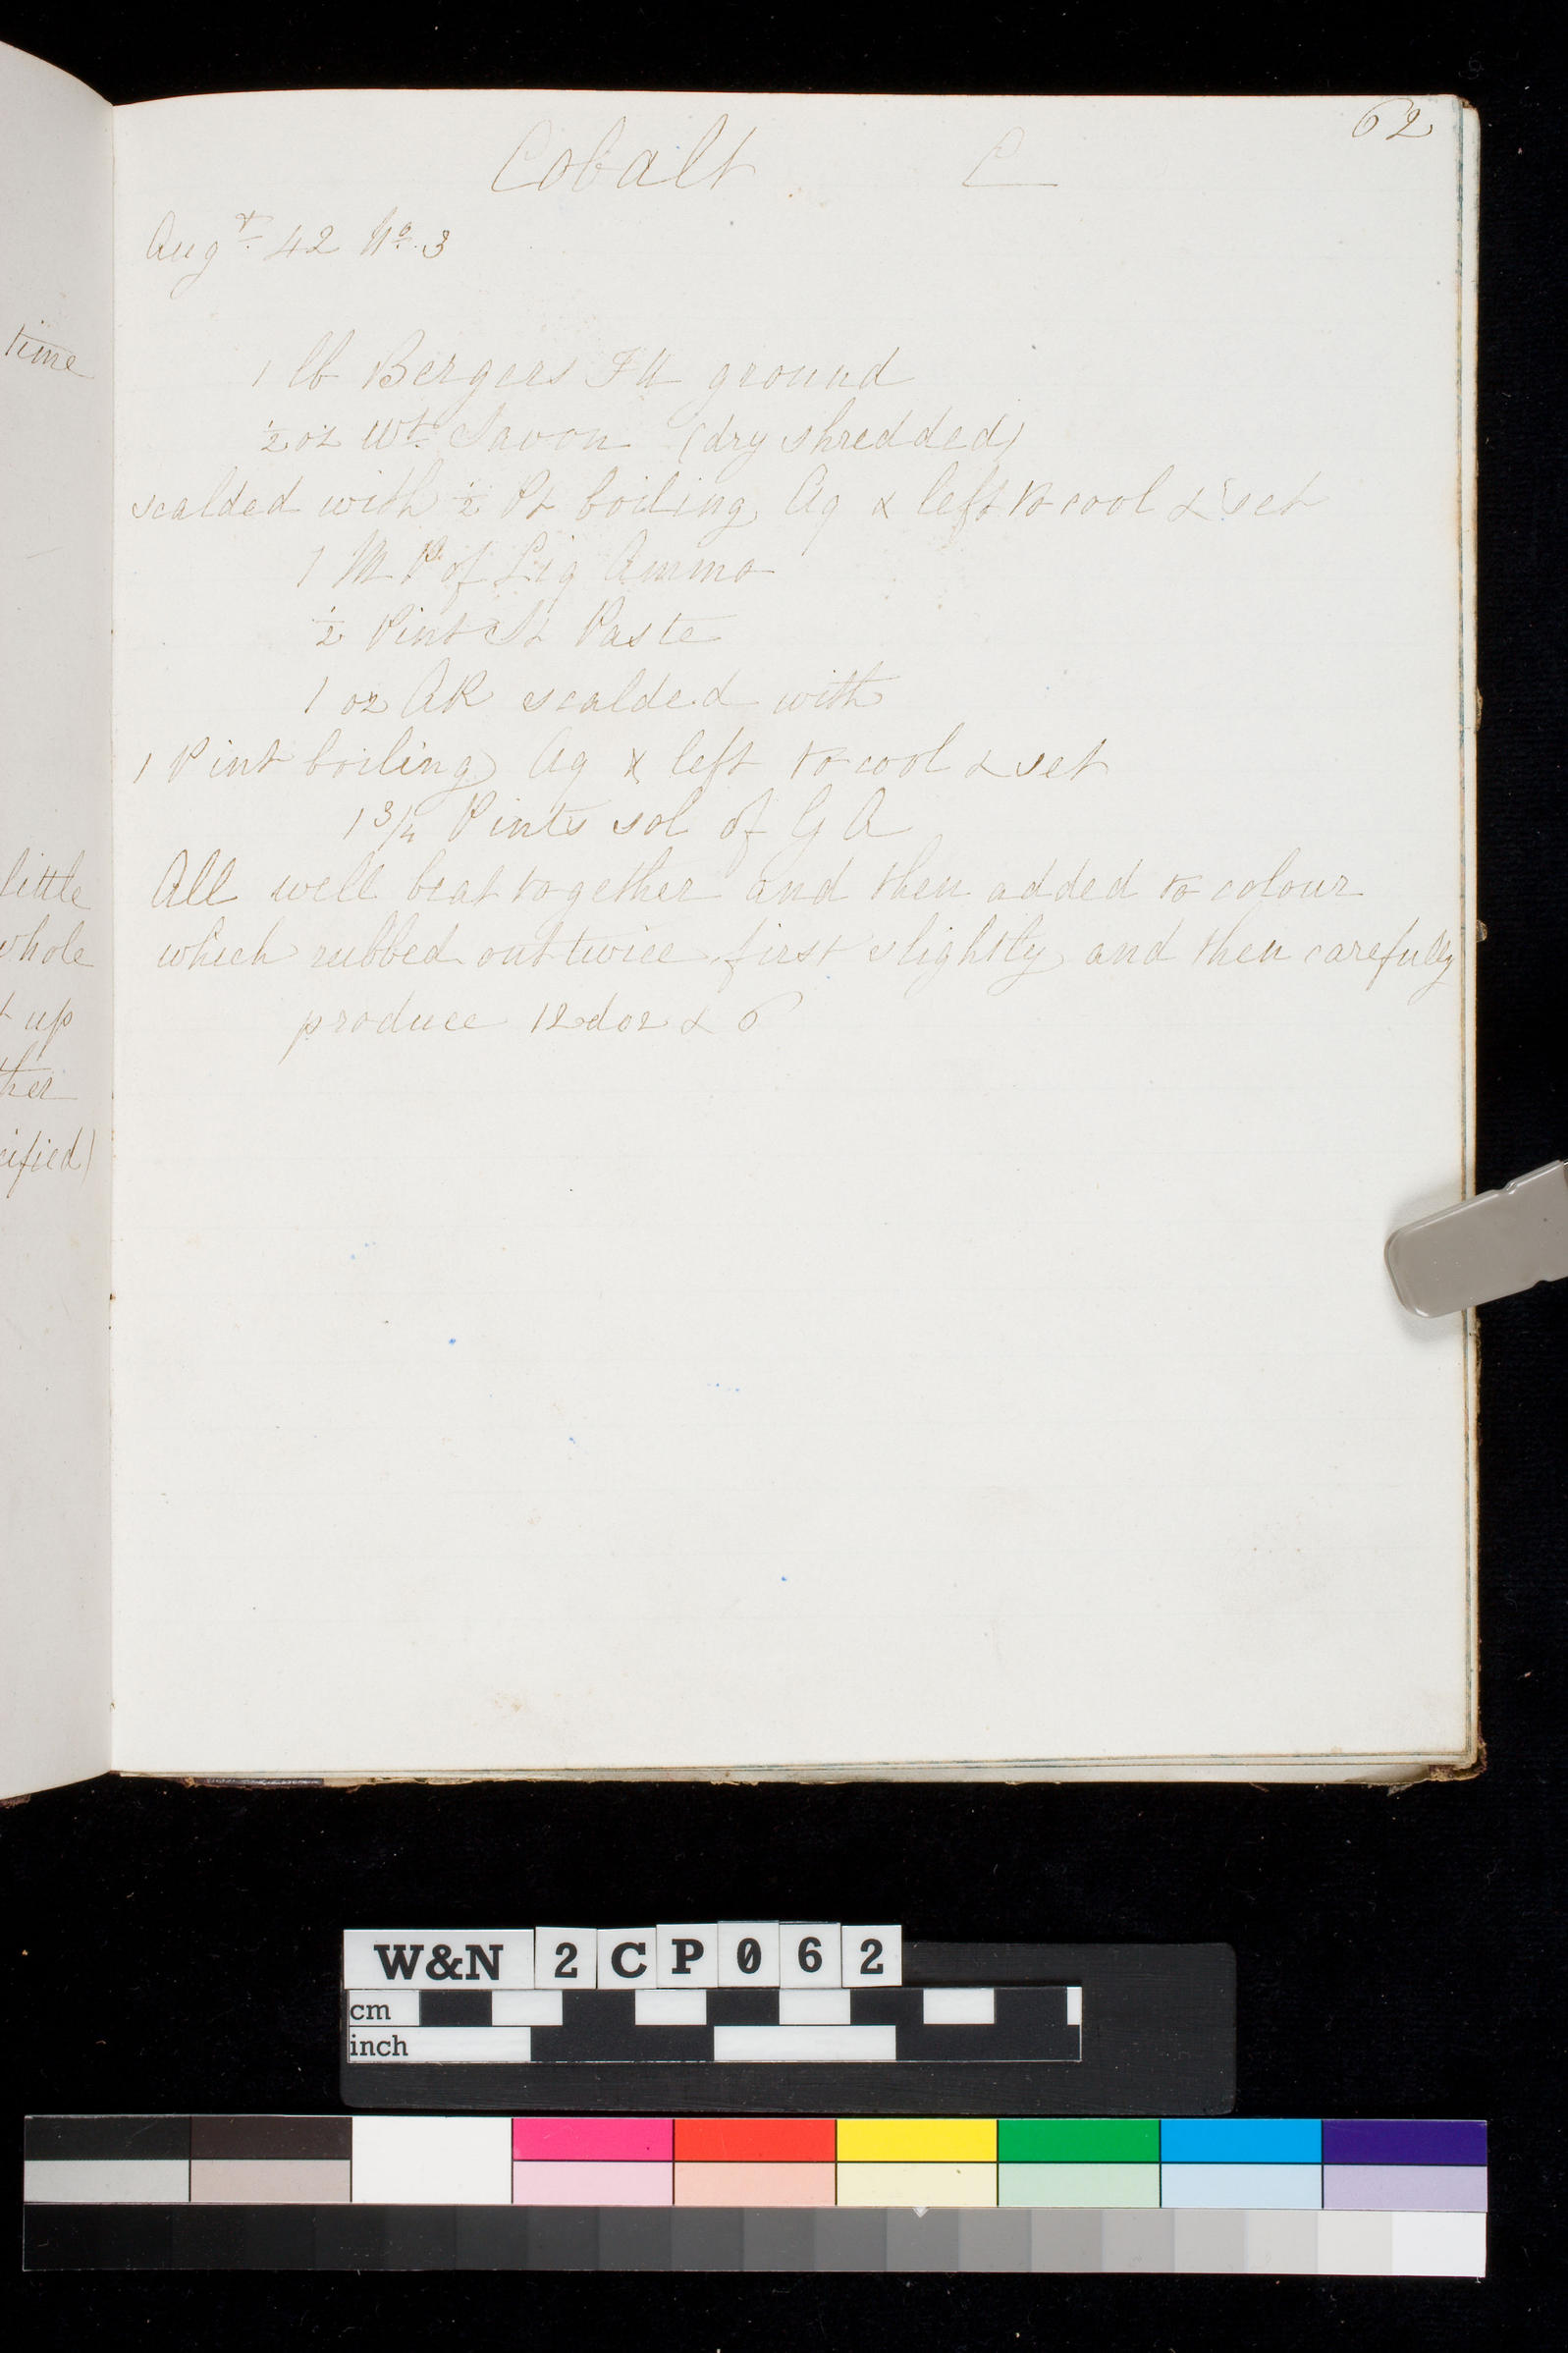 62
Cobalt C
Augt 42 No. 3
1 lb Bergers ground
½ oz Wt Savon (dry shredded)
scalded with ½ Pt boiling Aq & left to cool & set
1 M P of Liq Ammo
½ Pint St Paste
1 oz AR scalded with
1 Pint boiling Aq & left to cool & set
1 3/4 Pints sol of G A
All well beat together and then added to colour
which rubbed out twice first slightly and then carefully
produce 12 doz & 6
time
little
whole
up
ther
cified)
W&N 2CP062
cm
inch